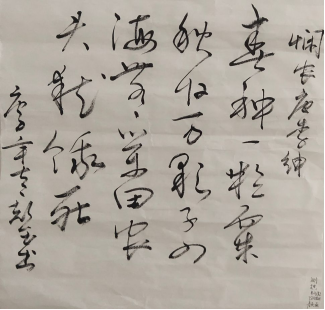 悯农 唐 李绅
春种一粒粟
秋收万颗子四
海无闲田农
夫犹饿死